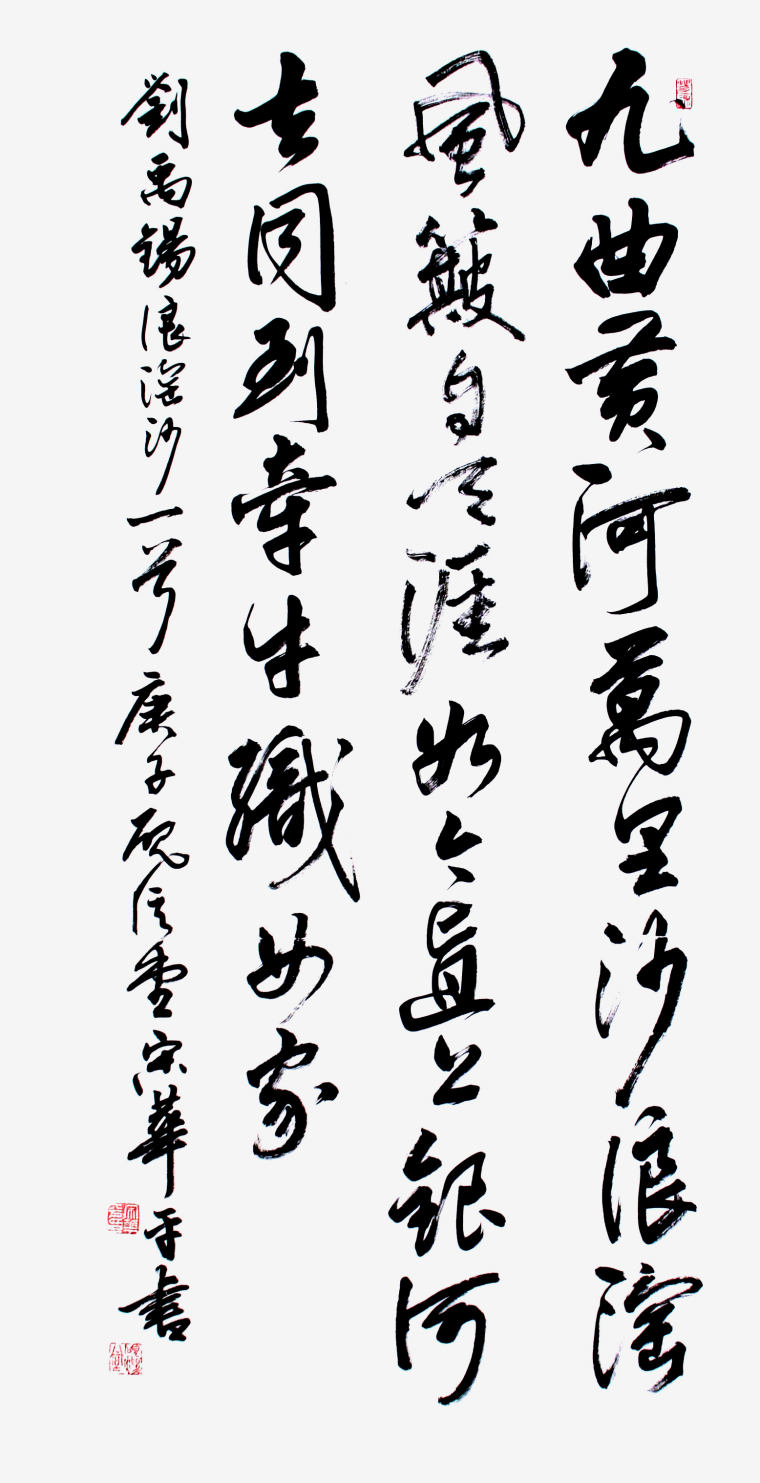 九曲黄河萬里沙浪淘
風簸自天涯如今直上銀河
去同到牽牛織女家
劉禹錫浪淘沙一首庚子宋華平書